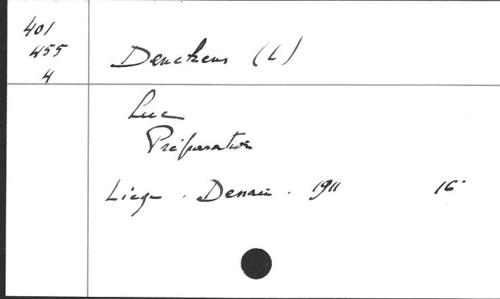 401
455
4
Denckens (L)
Luc
Préparatoire
Liège. Dessain. 1911 16°